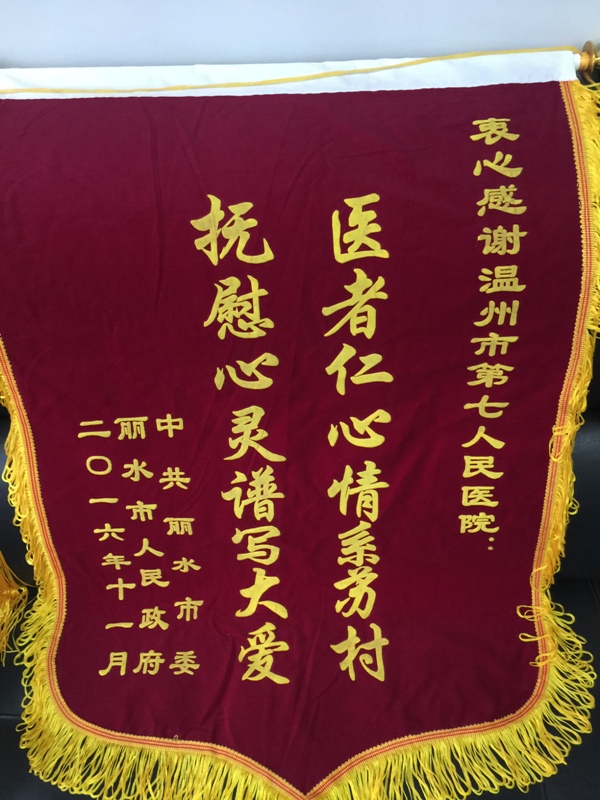 衷心感谢温州市第七人民医院：
医者仁心情系苏村
抚慰心灵谱写大爱
中共丽水市委
丽水市人民政府
二〇一六年十一月